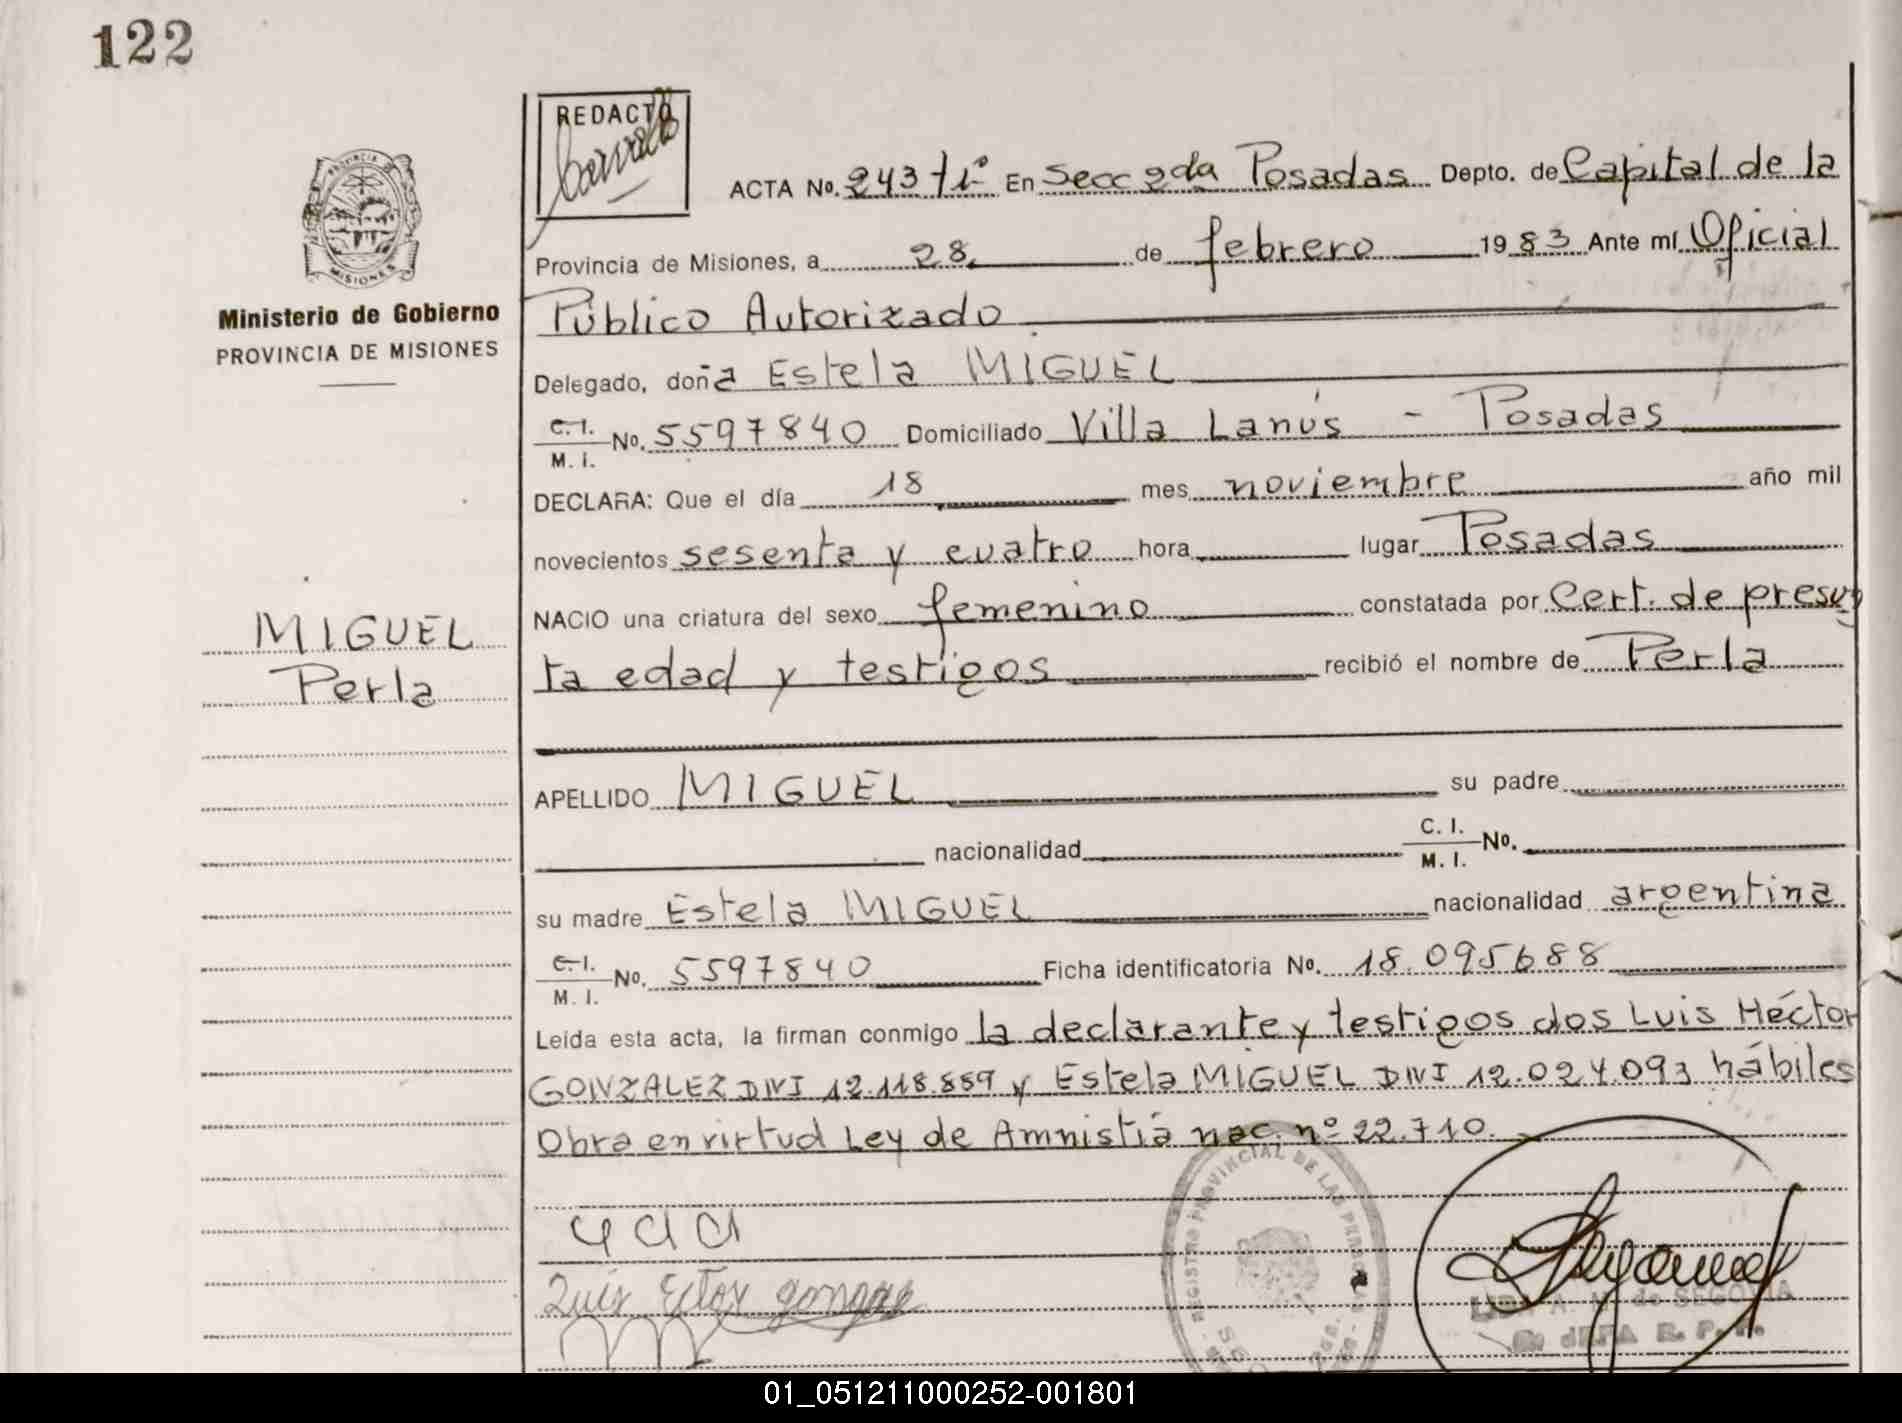 122
REDACTO
PROVINCIA DE
MISIONES
Ministerio de Gobierno
PROVINCIA DE MISIONES
MIGUEL
Perla
ACTA No. 243 tiº En Secc 2da Posadas Depto. de Capital de la
Provincia de Misiones, a 28 de febrero 1983 Ante mí Oficial
Público Autorizado
Delegado, doña Estela MIGUEL
C. I. / M. I. No. 5597840 Domiciliado Villa Lanús - Posadas
DECLARA: Que el día 18 mes noviembre año mil
novecientos sesenta y cuatro hora lugar Posadas
NACIO una criatura del sexo femenino constatada por Cert. de presun
ta edad y testigos recibió el nombre de Perla
APELLIDO MIGUEL su padre
nacionalidad C. I. / M. I. No.
su madre Estela MIGUEL nacionalidad argentina
C. I. / M. I. No. 5597840 Ficha identificatoria No. 18.095688
Leída esta acta, la firman conmigo la declarante y testigos dos Luis Héctor
GONZALEZ DNI 12.118.859 y Estela MIGUEL DNI 12.024.093 hábiles
Obra en virtud Ley de Amnistía nac. nº 22.710.
REGISTRO PROVINCIAL DE LAS PERSONAS
Luis Ector
de SEGOVIA
R. P. P.
01_051211000252-001801